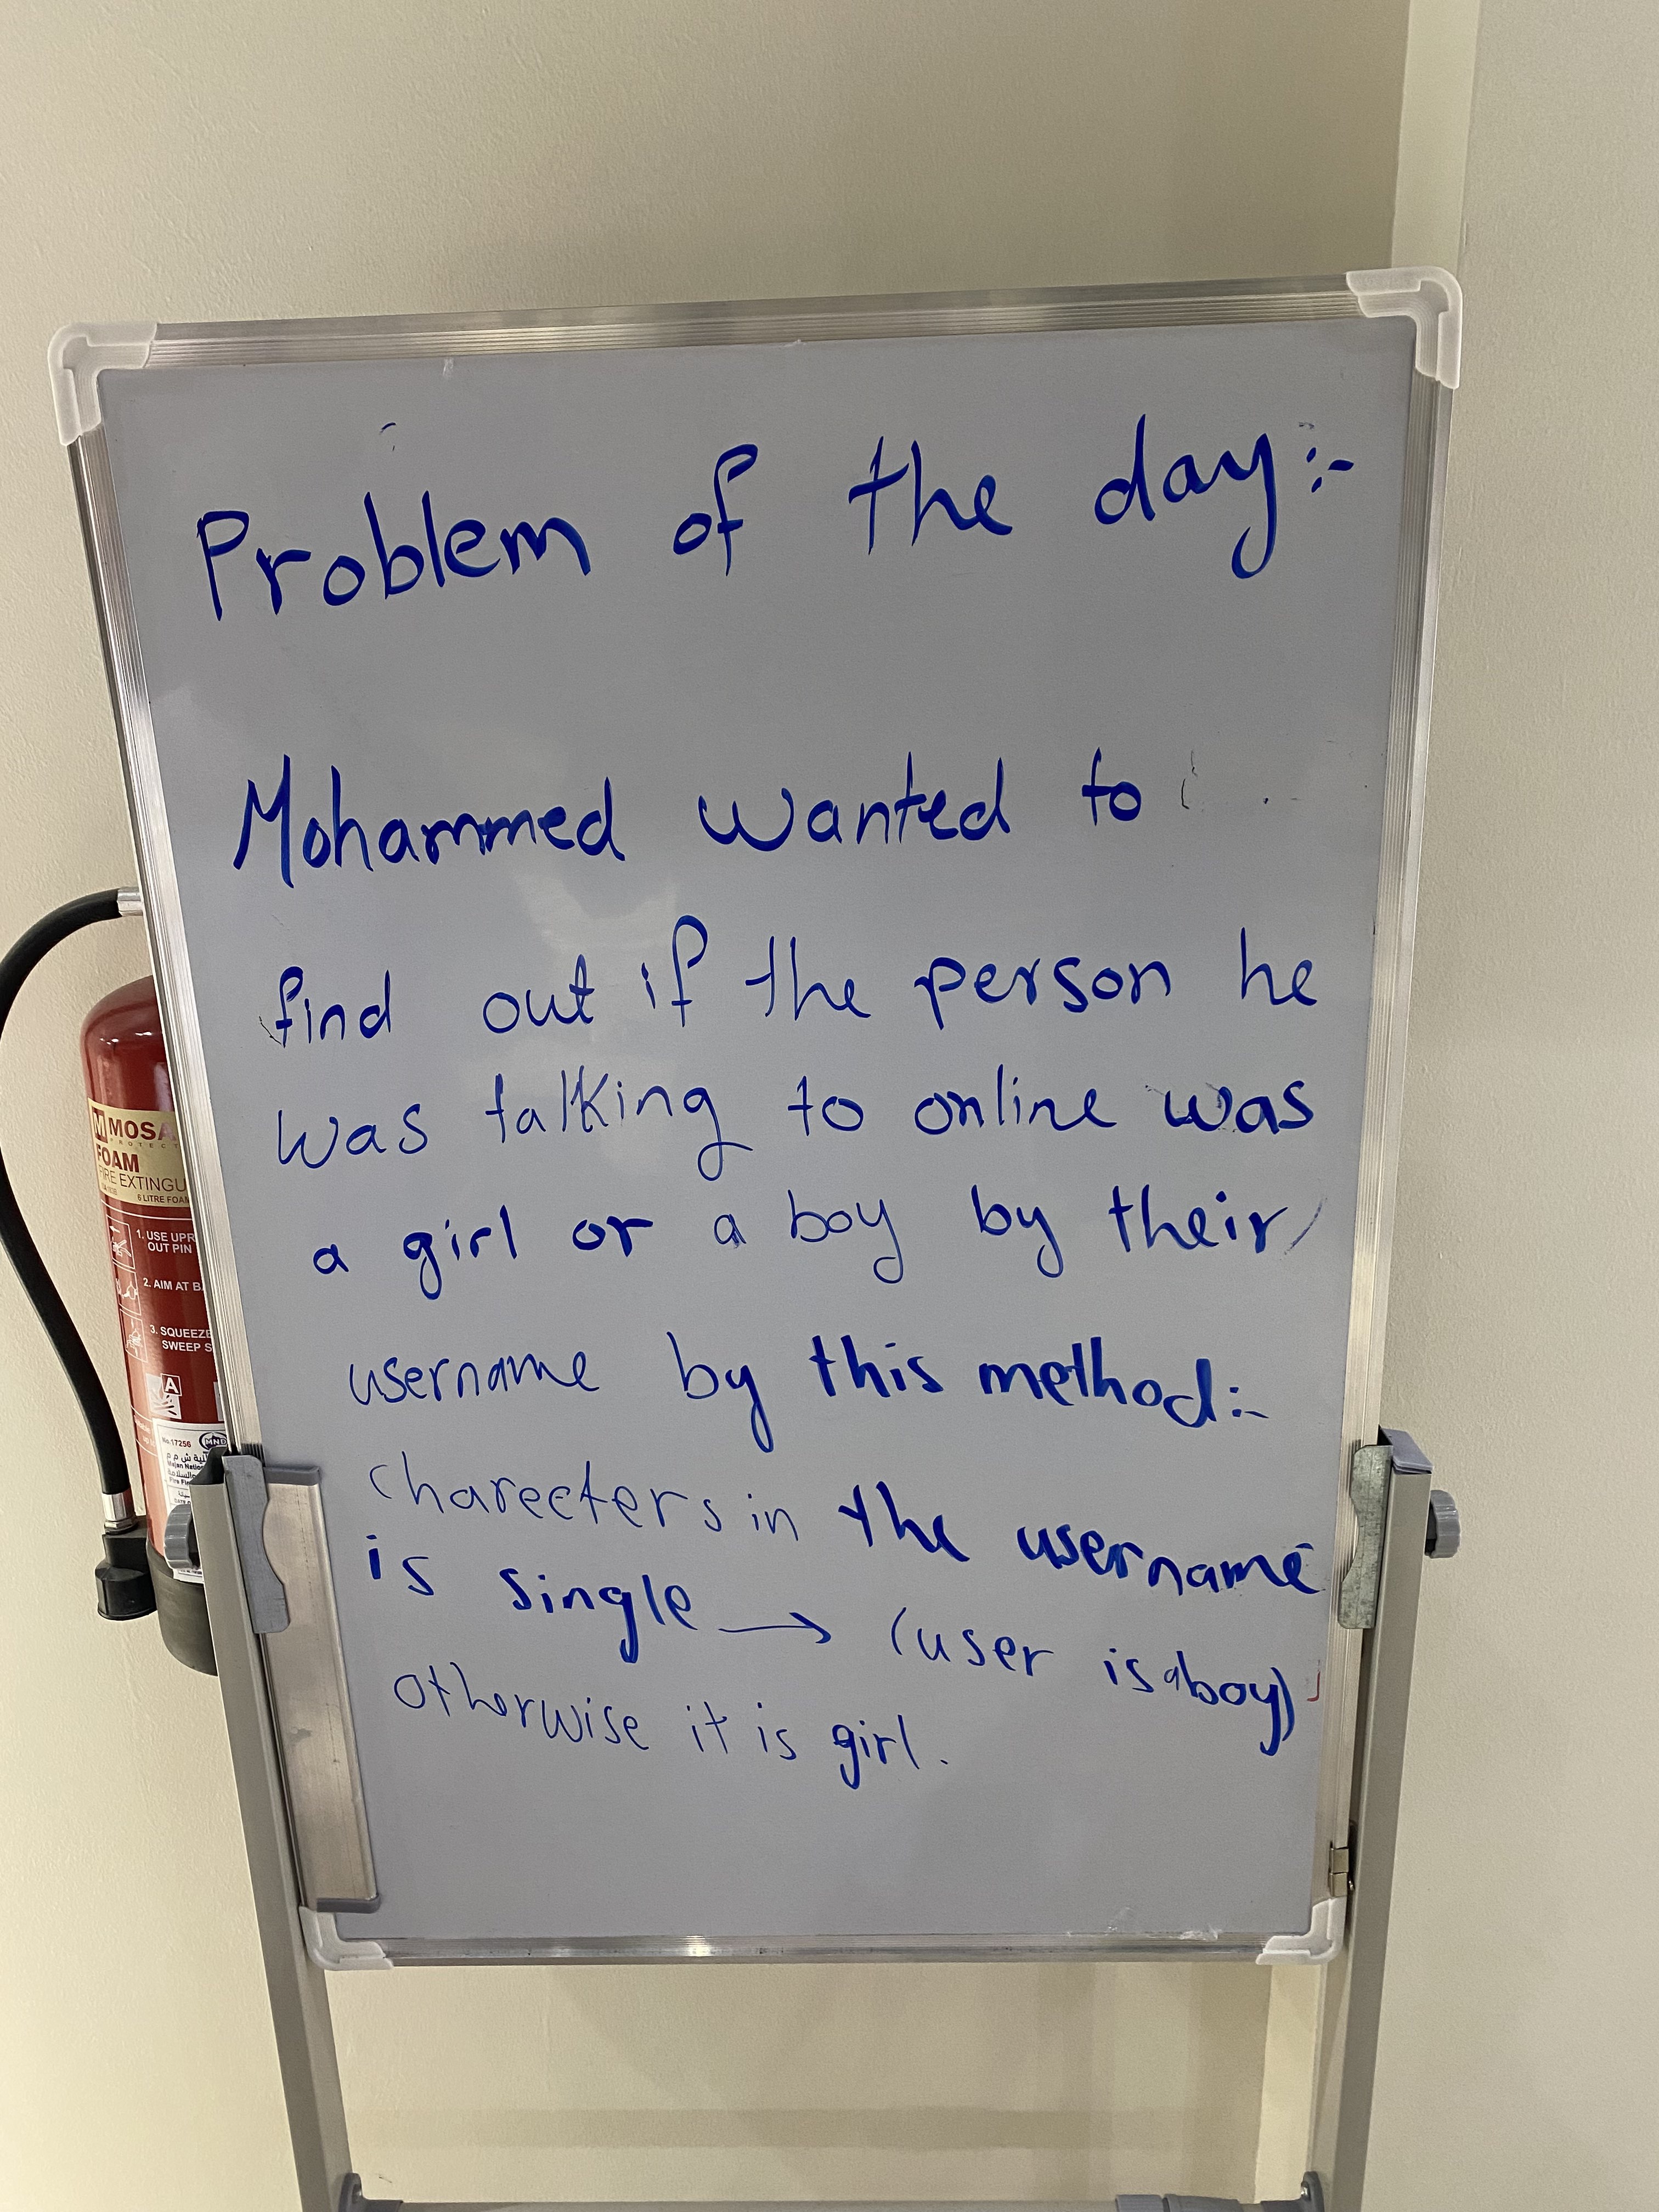 Problem of the day:-
Mohammed wanted to
find out if the person he
was talking to online was
a girl or a boy by their
username by this method:-
charecters in the username
is single → (user is a boy)
otherwise it is girl.
MOSA
PROTECT
FOAM
FIRE EXTINGU
6 LITRE FOAM
1. USE UPR
OUT PIN
2. AIM AT BA
3. SQUEEZE
SWEEP S
A
No.17256
MND
Majan Nation